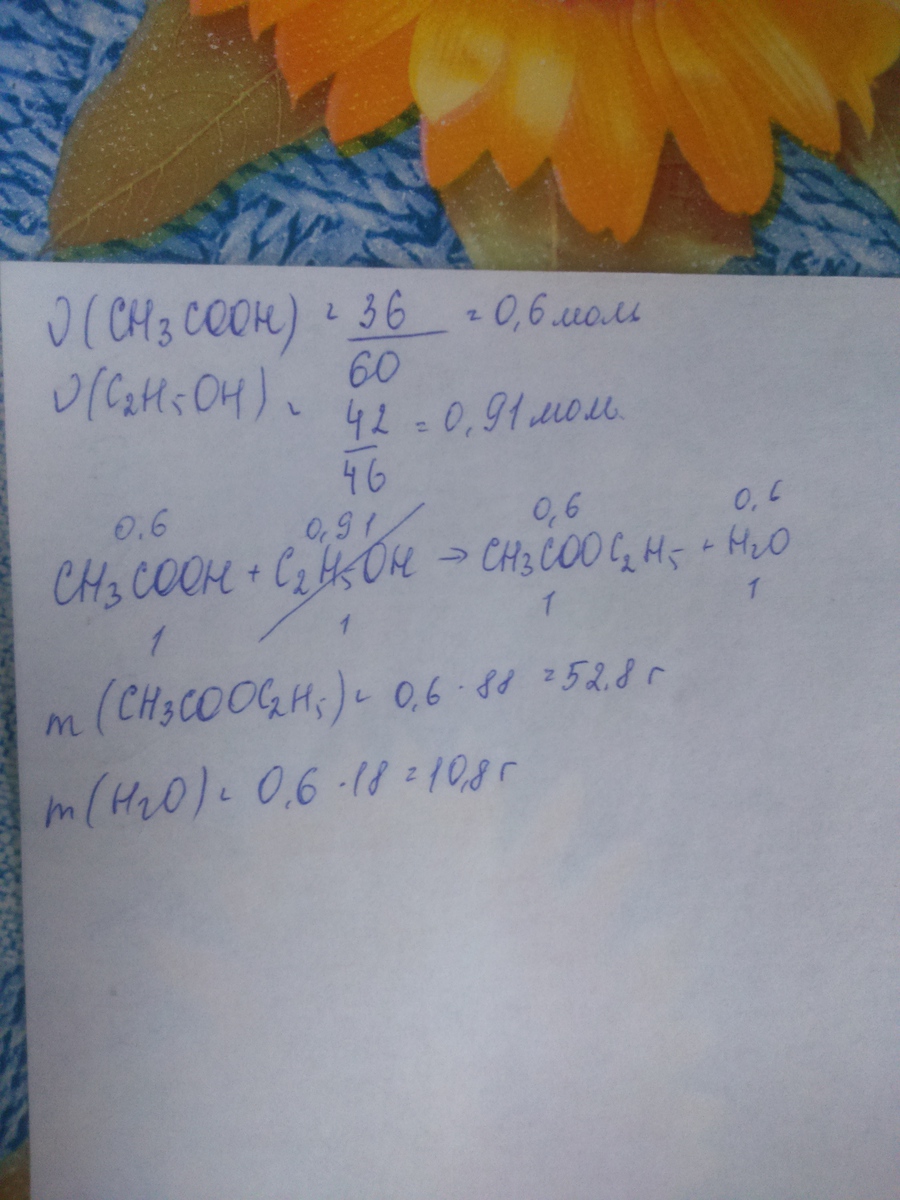 ν(CH₃COOH) = 36/60 = 0,6 моль
ν(C₂H₅OH) = 42/46 = 0,91 моль
0,6 0,91 0,6 0,6
CH₃COOH + C₂H₅OH → CH₃COOC₂H₅ + H₂O
1 1 1 1
m(CH₃COOC₂H₅) = 0,6 · 88 = 52,8 г
m(H₂O) = 0,6 · 18 = 10,8 г